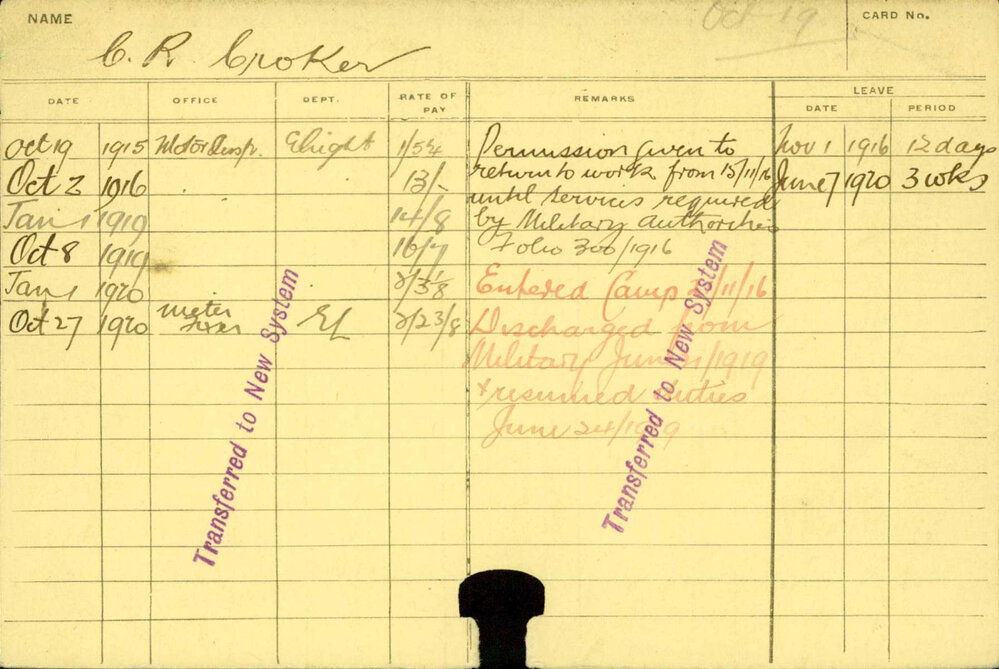 NAME
C. R. Croker
Oct 19
CARD No.
DATE OFFICE DEPT. RATE OF PAY REMARKS LEAVE
DATE PERIOD
Oct 19 1915 Motor Insp. Elight
Oct 2 1916 13/-
Jan 1 1919 14/8
Oct 8 1919 16/7
Jan 1 1920
Oct 27 1920 meter El
Permission given to
return to work from 15/11/16
until services required
by Military authorities
Folio 300/1916
Entered Camp /11/16
Discharged from
Military June /1919
+ resumed duties
June 24/1919
Nov 1 1916 12 days
June 7 1920 3 wks
Transferred to New System
Transferred to New System